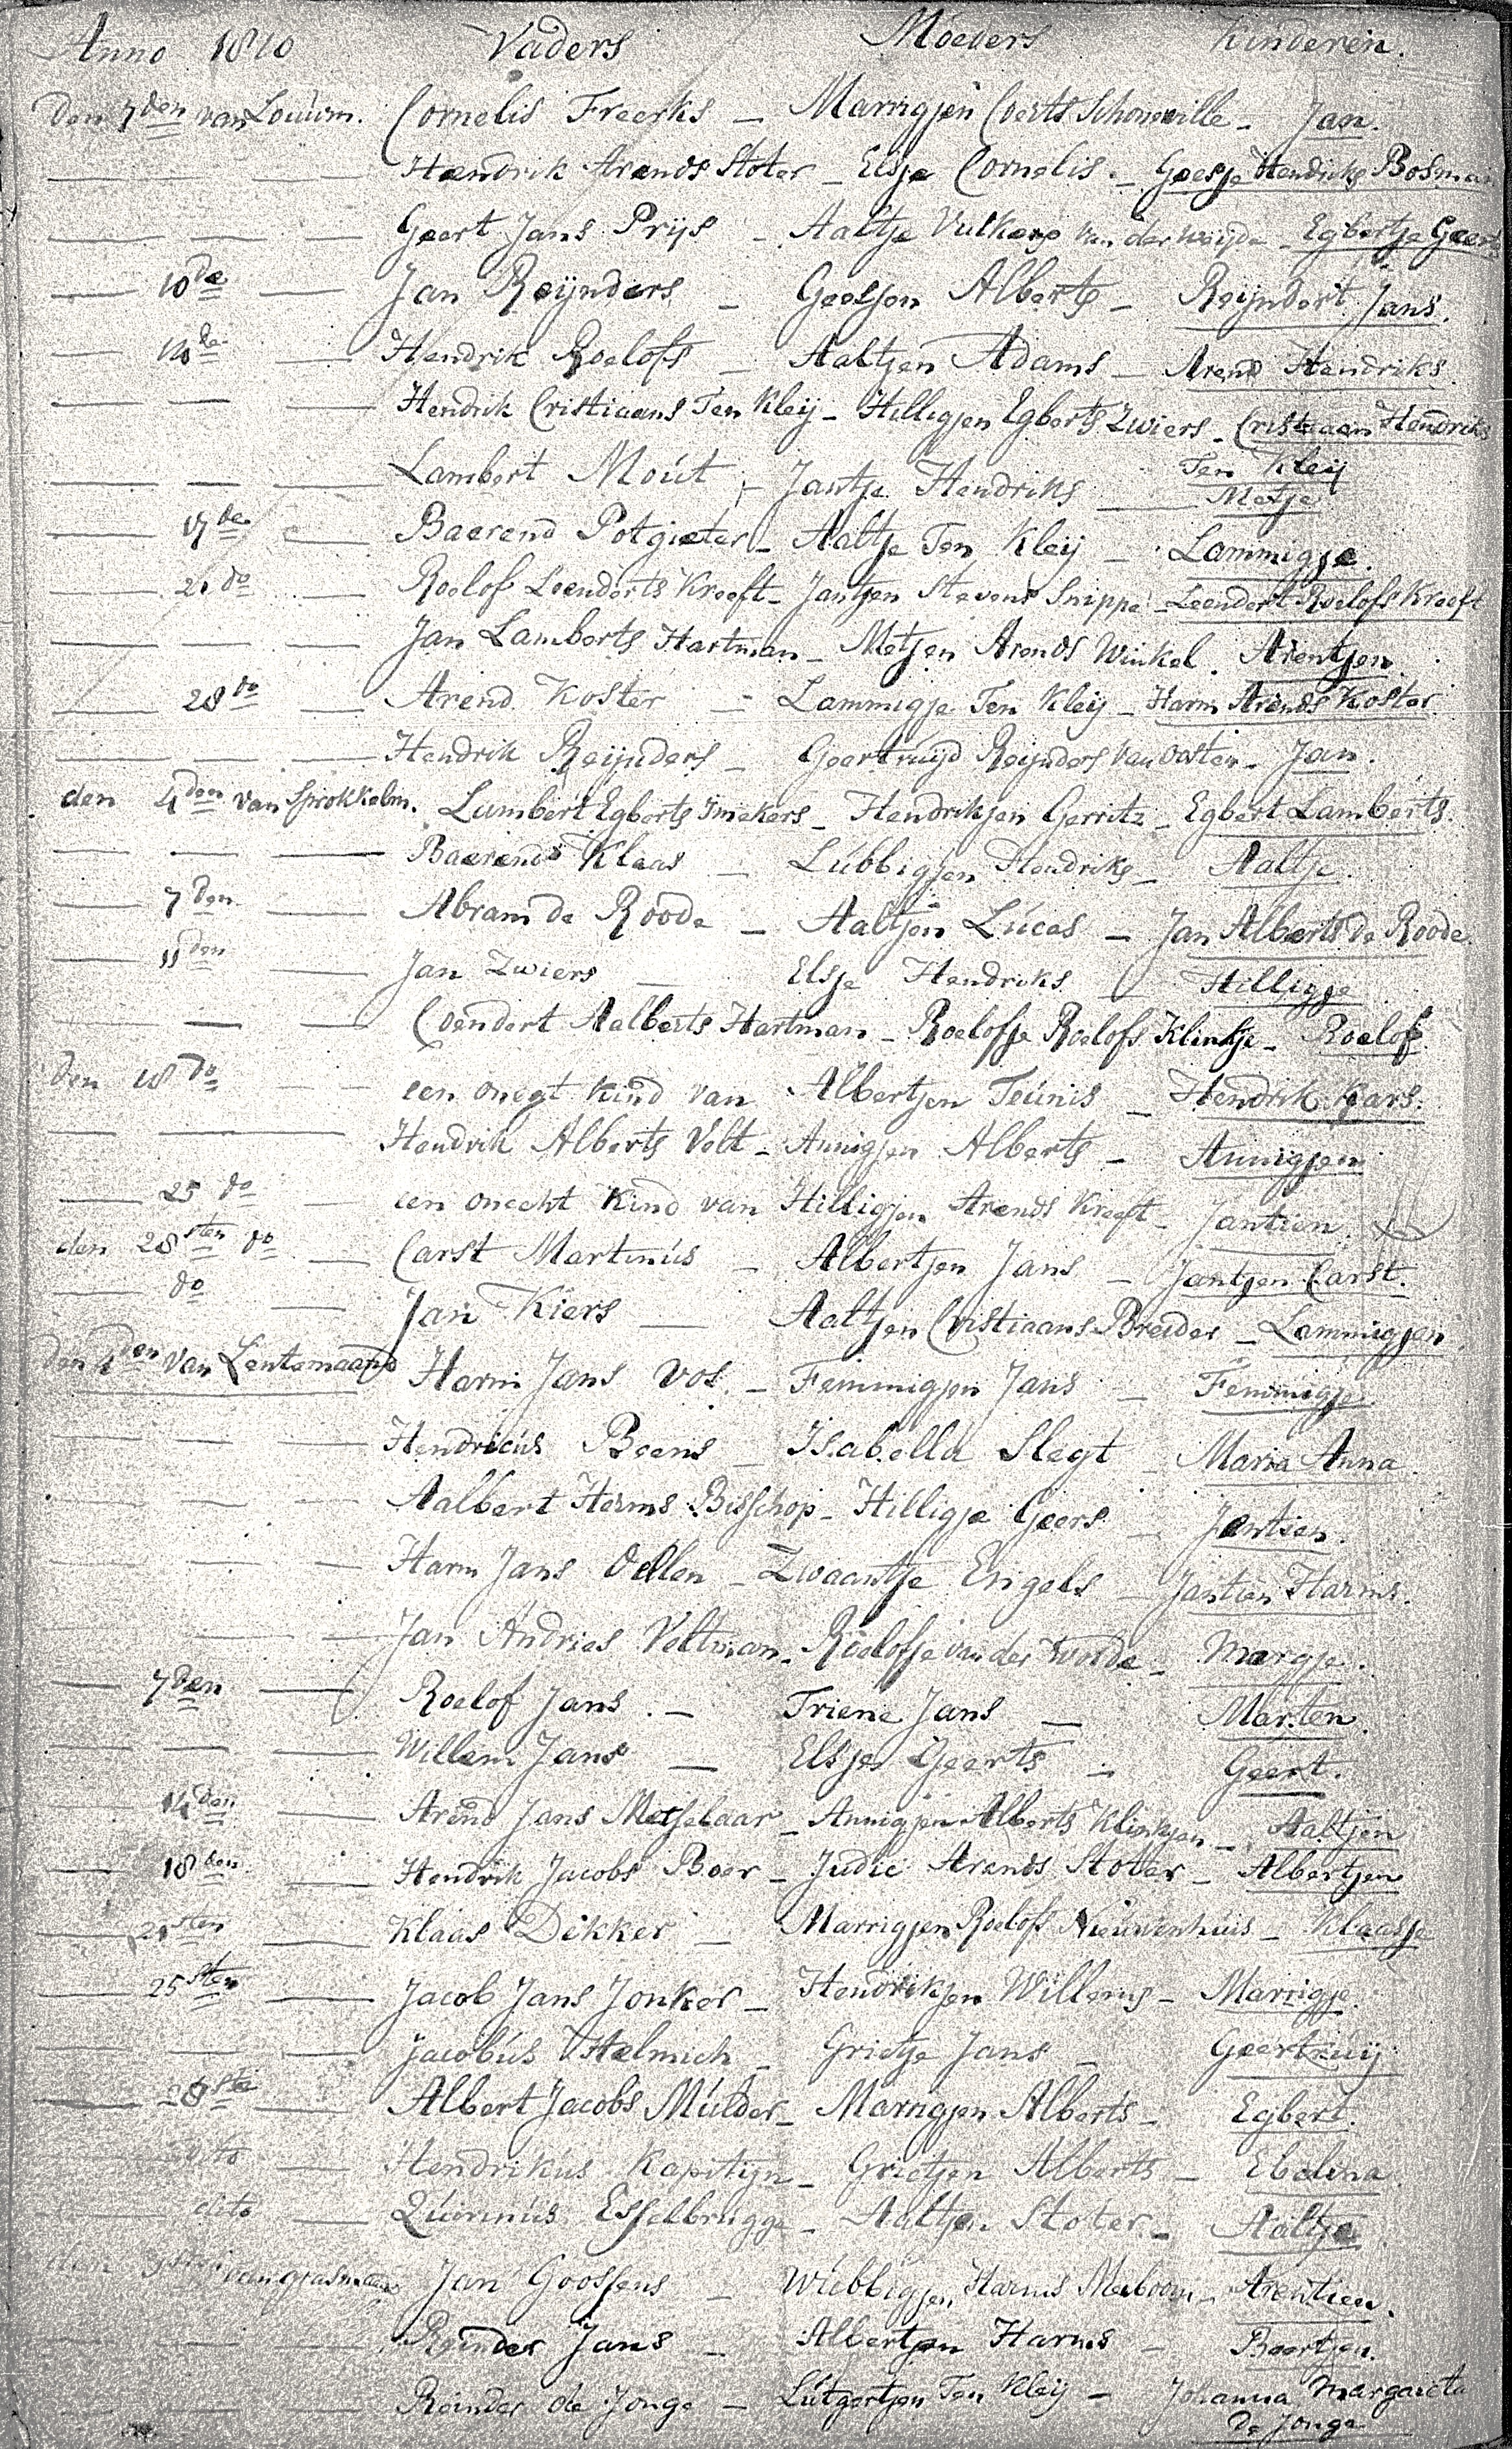 Anno 1810 Vaders Moeders Kinderen.
Den 7den van Louwm. Cornelis Freerks — Marrigjen Coerts Schonewille — Jan.
Hendrik Arends Stoter — Elsje Cornelis. — Geesje Hendriks Bosman
Geert Jans Prijs — Aaltje Vulkers van der Weijde — Egbertje Geerts
10de Jan Reijnders — Geesjen Alberts — Reijndert Jans.
14de Hendrik Roelofs — Aaltjen Adams — Arend Hendriks
Hendrik Cristiaans Ten Kleij — Hilligjen Egberts Zwiers — Cristiaan Hendriks
Ten Kleij
Lambert Moút — Jantje Hendriks — Metje
17de Baerend Potgieter — Aaltje Ten Kleij — Lammigje.
21 do Roelof Leenderts Kreeft — Jantjen Stevens Snippe — Leendert Roelofs Kreeft
Jan Lamberts Hartman — Metjen Arends Winkel. Arentjen
28 do Arend Koster — Lammigje Ten Kleij — Harm Arends Koster
Hendrik Reijnders — Geertruijd Reijnders van Oosten — Jan.
den 4den van Sprokkelm. Lambert Egberts Smekers — Hendrikjen Gerritz — Egbert Lamberts.
Baerends Klaas — Lúbbigjen Hendriks — Aaltje.
7den Abram de Roode — Aaltjen Lúcas — Jan Alberts de Roode.
11den Jan Zwiers — Elsje Hendriks — Hilligje
Coendert Aalberts Hartman — Roelofje Roelofs Klintje — Roelof.
Den 18 do een onegt kind van Albertjen Teúnis — Hendrik Kars.
Hendrik Alberts Volt — Annigjen Alberts — Annigjen
25 do een onecht Kind van Hilligjen Arends Kreeft — Jantien.
den 28sten do Carst Martinús — Albertjen Jans — Jantjen Carst.
do Jan Kiers — Aaltjen Cristiaans Breider — Lammigjen
Den 4den van Lentemaand Harm Jans Vos. — Femmigjen Jans — Femmigje.
Hendricús Beens — Isabella Slegt — Maria Anna
Aalbert Harms Bisschop — Hilligje Geers — Jentien.
Harm Jans Oellen — Zwaantje Engels — Jantien Harms.
Jan Andries Veltman — Roelofje van der Worde — Margje.
7den Roelof Jans. — Triene Jans — Marten.
Willem Jans — Elsjen Geerts — Geert.
14den Arend Jans Metselaar — Annigjen Alberts Klinkjen — Aaltjen
18den Hendrik Jacobs Boer — Judic Arends Stoter — Albertjen
21sten Klaas Dekker — Marrigjen Roelofs Nieuwenhuis — Klaasje
25sten Jacob Jans Jonker — Hendrikjen Willems — Marrigje
Jacobús Helmich — Grietje Jans — Geertruij
28ste Albert Jacobs Múlder — Marrigjen Alberts — Egbert.
dito Hendrikus Kapitijn — Grietjen Alberts — Ebelina
dito Qúirinús Esselbrugge — Aaltjen Stoter — Aaltje
den van grasmaand Jan Goossens — Wiebbigjen Harms Meiboom — Arentien.
Reinder Jans — Albertjen Harms — Beertjen.
Reinder de Jonge — Lútgertjen Ten Kleij — Johanna Margaieta
De Jonge